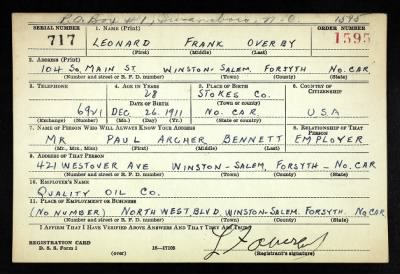 P.O. Box #1, Swansboro, N.C. 1595
SERIAL NUMBER 1. NAME (Print) ORDER NUMBER
717 LEONARD FRANK OVERBY 1595
(First) (Middle) (Last)
2. ADDRESS (Print)
104 So. MAIN ST. WINSTON-SALEM, FORSYTH NO. CAR.
(Number and street or R. F. D. number) (Town) (County) (State)
3. TELEPHONE 4. AGE IN YEARS 5. PLACE OF BIRTH 6. COUNTRY OF CITIZENSHIP
28 STOKES CO.
DATE OF BIRTH (Town or county)
6921 DEC. 26, 1911 NO. CAR. USA
(Exchange) (Number) (Mo.) (Day) (Yr.) (State or country)
7. NAME OF PERSON WHO WILL ALWAYS KNOW YOUR ADDRESS 8. RELATIONSHIP OF THAT PERSON
MR PAUL ARCHER BENNETT EMPLOYER
(Mr., Mrs., Miss) (First) (Middle) (Last)
9. ADDRESS OF THAT PERSON
421 WESTOVER AVE WINSTON-SALEM, FORSYTH - NO. CAR
(Number and street or R. F. D. number) (Town) (County) (State)
10. EMPLOYER'S NAME
QUALITY OIL CO.
11. PLACE OF EMPLOYMENT OR BUSINESS
(NO NUMBER) NORTH WEST BLVD. WINSTON-SALEM FORSYTH NO. CAR
(Number and street or R. F. D. number) (Town) (County) (State)
I AFFIRM THAT I HAVE VERIFIED ABOVE ANSWERS AND THAT THEY ARE TRUE.
REGISTRATION CARD
D. S. S. Form 1 (over) 16-17105 (Registrant's signature)